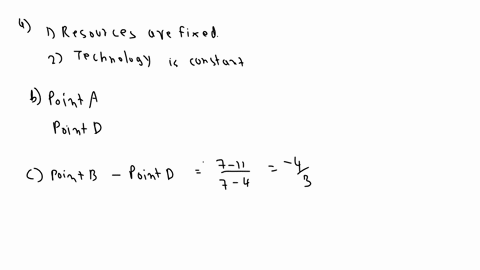 4) 1) Resources are fixed.
2) Technology is constant
b) Point A
Point D
c) Point B - Point D = 7-11 / 7-4 = -4/3